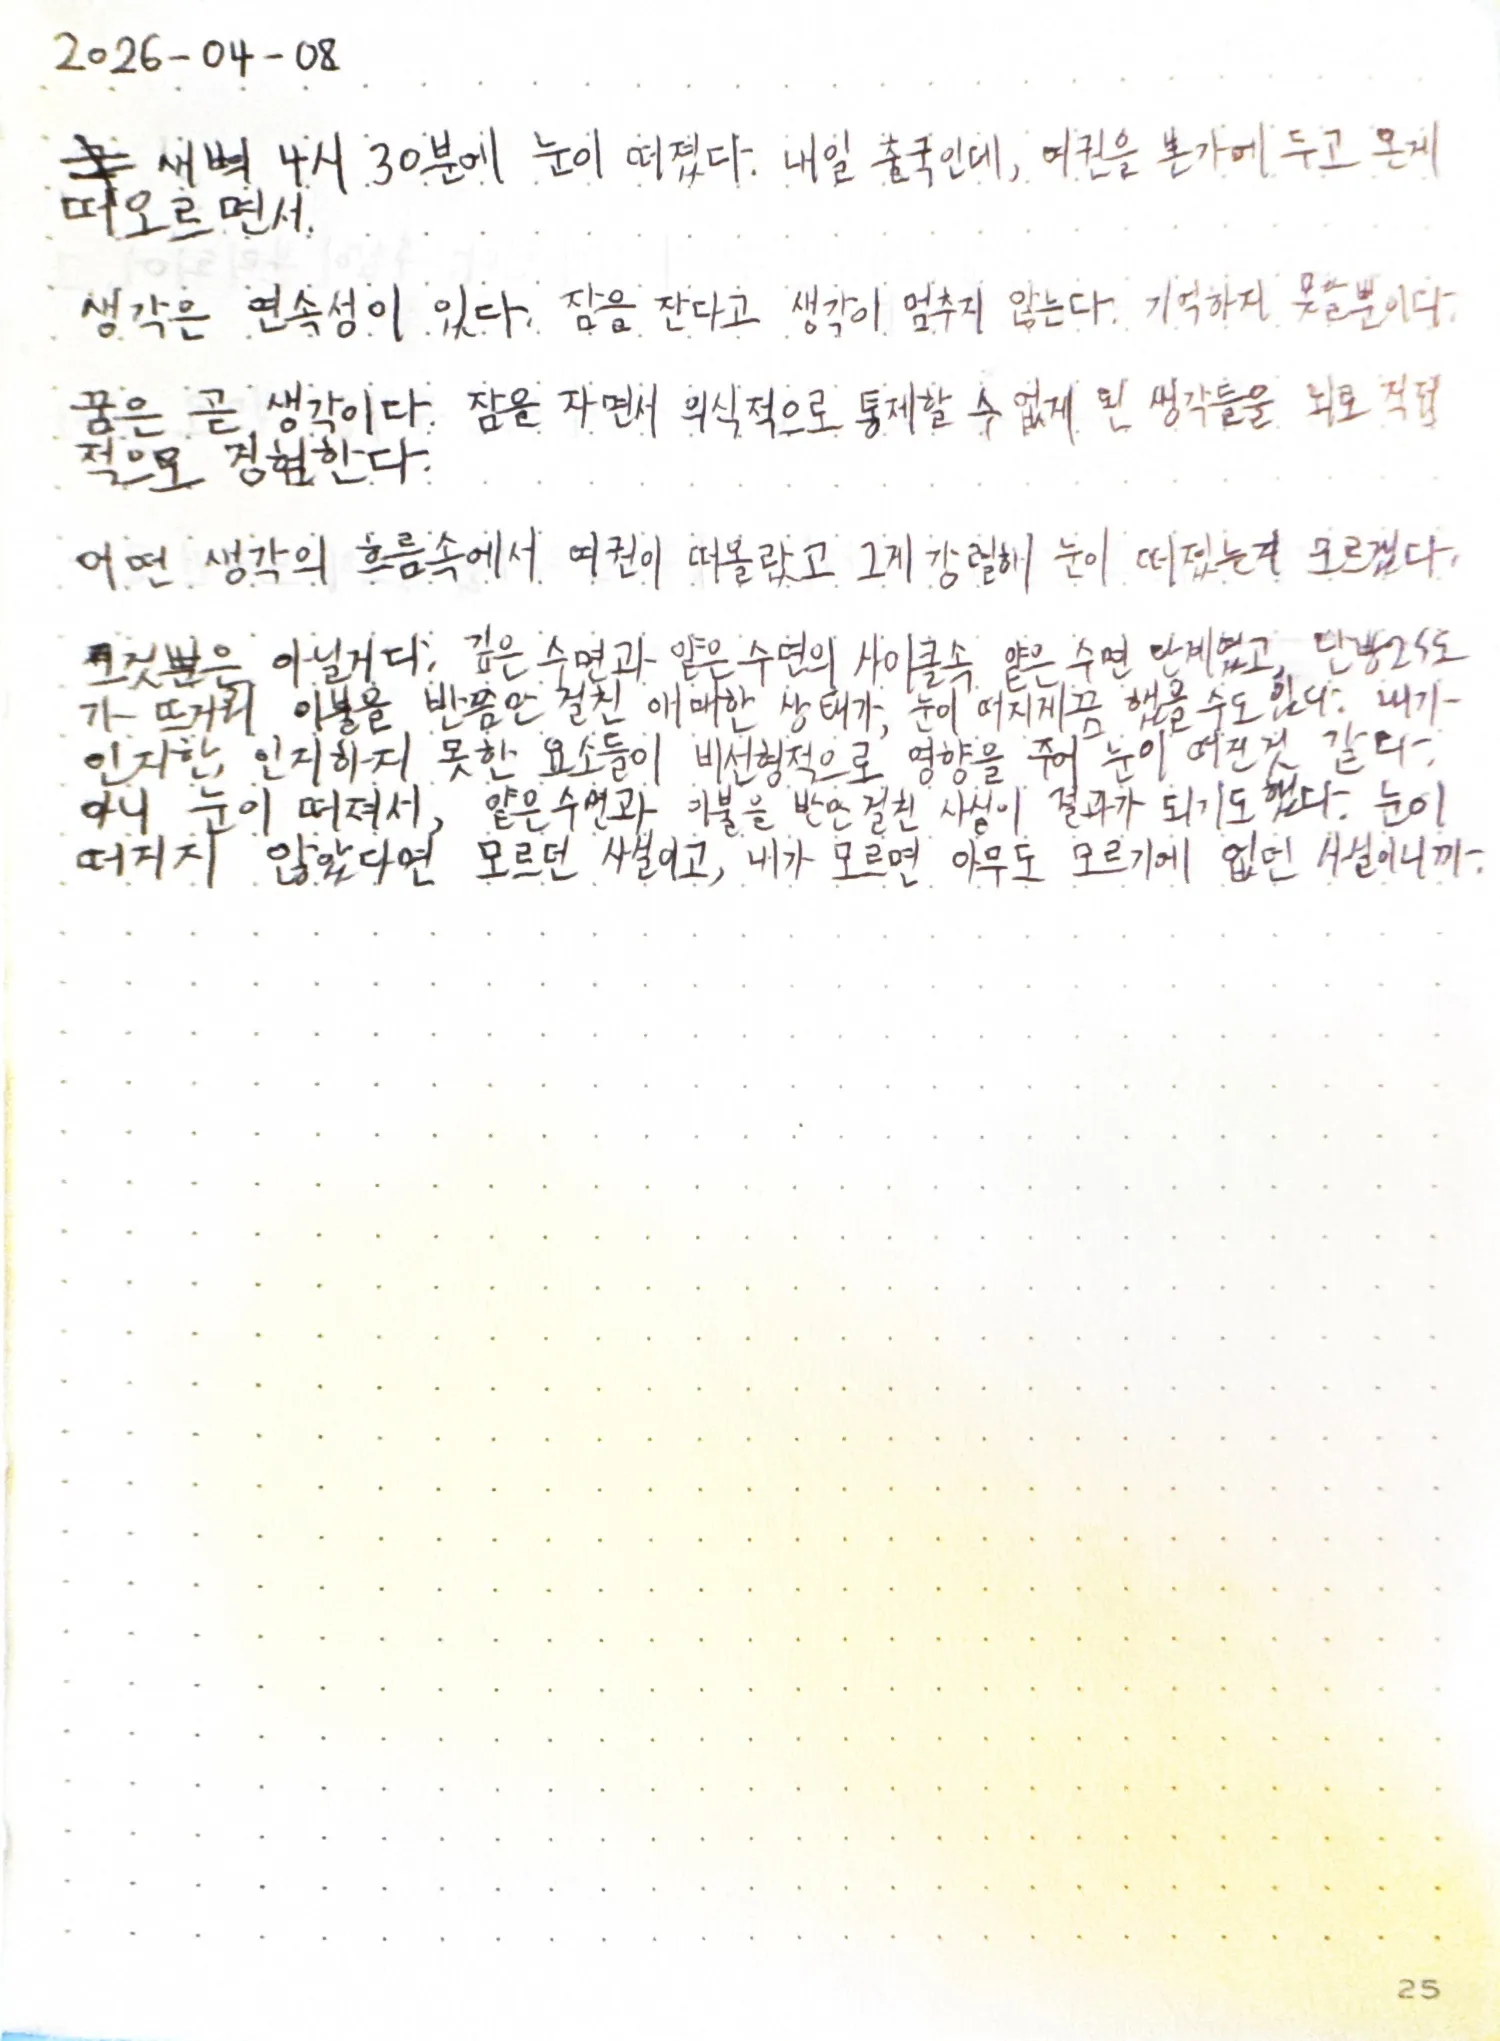 2026-04-08
새벽 4시 30분에 눈이 떠졌다. 내일 출국인데, 여권을 본가에 두고 온게
떠오르면서.
생각은 연속성이 있다. 잠을 잔다고 생각이 멈추지 않는다. 기억하지 못할뿐이다.
꿈은 곧 생각이다. 잠을 자면서 의식적으로 통제할 수 없게 된 생각들을 뇌로 직접
적으로 경험한다.
어떤 생각의 흐름속에서 여권이 떠올랐고 그게 강렬해 눈이 떠졌는지 모르겠다.
그것뿐은 아닐거다. 깊은 수면과 얕은 수면의 사이클속 얕은 수면 단계였고, 난방25도
가 뜨거워 이불을 반쯤만 걸친 애매한 상태가, 눈이 떠지게끔 했을 수도 있다. 내가
인지한, 인지하지 못한 요소들이 비선형적으로 영향을 주어 눈이 떠진것 같다.
아니 눈이 떠져서, 얕은수면과 이불을 반만 걸친 사실이 결과가 되기도했다. 눈이
떠지지 않았다면 모르던 사실이고, 내가 모르면 아무도 모르기에 없던 사실이니까.
25